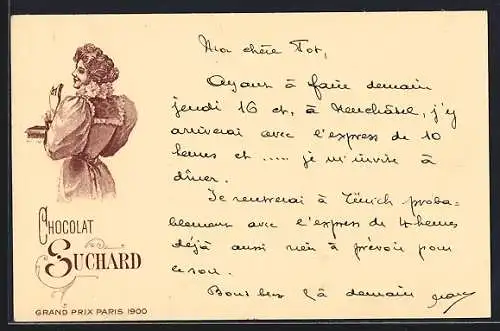 Ma chère Tot,
Ayant à faire demain
jeudi 16 ct, à Neuchâtel, j'y
arriverai avec l'express de 10
heures et ..... je m'invite à
dîner.
Je rentrerai à Zürich proba-
blement avec l'express de 4 heures
déjà aussi rien à prévoir pour
ce soir.
Bons à demain
CHOCOLAT
SUCHARD
GRAND PRIX PARIS 1900